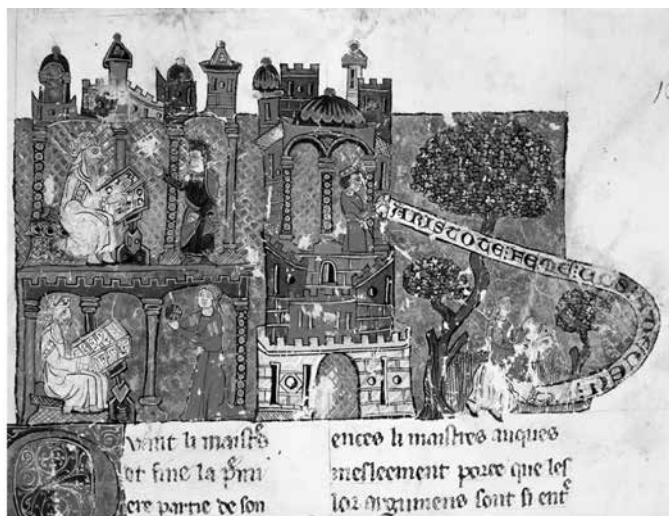 ARISTOTE:
Quant li maistres
ot fine la
ere partie de son
ences li maistres auques
mesleement porce que les
lor argumens sont si